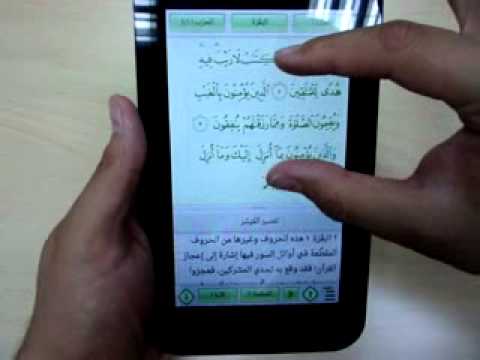 البقرة
كتب لا ريب فيه
هُدًى لِلْمُتَّقِينَ الَّذِينَ يُؤْمِنُونَ بِالْغَيْبِ
وَيُقِيمُونَ الصَّلَوٰةَ وَمِمَّا رَزَقْنَٰهُمْ يُنفِقُونَ
وَالَّذِينَ يُؤْمِنُونَ بِمَا أُنزِلَ إِلَيْكَ وَمَا أُنزِلَ
تفسير الميسر
١ البقرة ١ هذه الحروف وغيرها من الحروف
المقطّعة في أوائل السور فيها إشارة إلى إعجاز
القرآن؛ فقد وقع به تحدي المشركين، فعجزوا